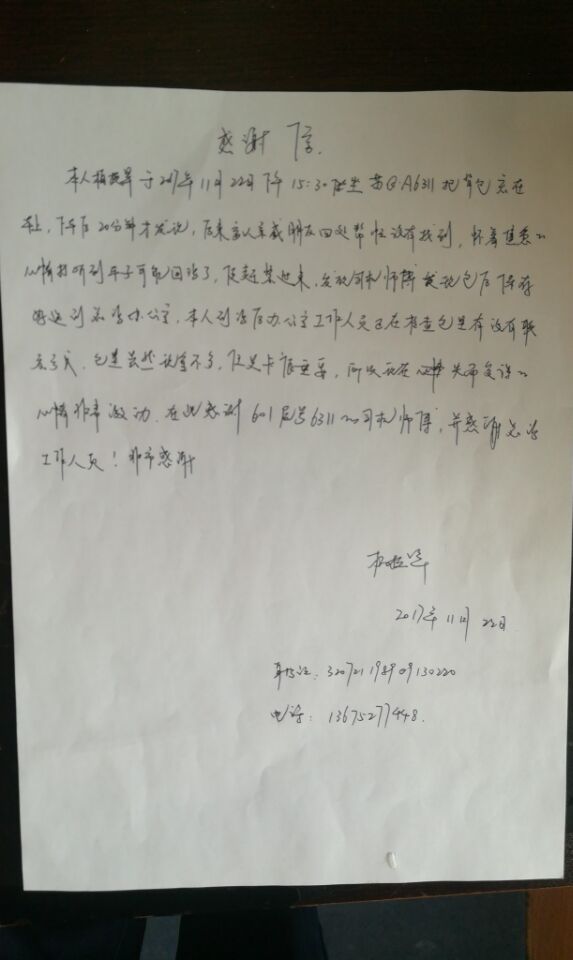 感谢信
本人 于2017年11月22日下午15:30 坐苏GA6311把背包忘在
车上,下车后20分钟才发现,后来家人亲戚朋友四处帮忙没有找到,怀着焦急的
心情打听到车子可能回场了,便赶紧过来,发现司机师傅发现包后 存
送到总站办公室,本人到 后办公室工作人员正在检查包里有没有联
系方式,包里虽然现金不多,但是卡 重要,所以现在 失而复得的
心情非常激动,在此感谢601 号6311的司机师傅,并感谢总站
工作人员!非常感谢
2017年11月22日
身份证:320721198909130220
电话:13675277448.